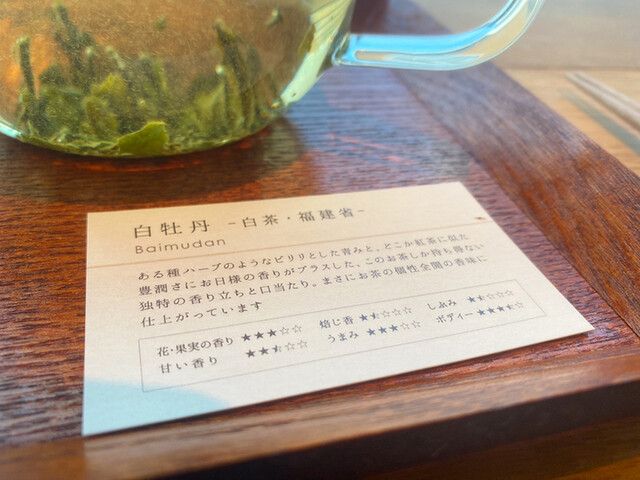 白牡丹 -白茶・福建省-
Baimudan
ある種ハーブのようなピリリとした青みと、どこか紅茶に似た
豊潤さにお日様の香りがプラスした、このお茶しか持ち得ない
独特の香り立ちと口当たり。まさにお茶の個性全開の香味に
仕上がっています
花・果実の香り ★★★☆☆ 焙じ香 ★⯪☆☆☆ しぶみ ★⯪☆☆☆
甘い香り ★★⯪☆☆ うまみ ★★★☆☆ ボディー ★★★⯪☆